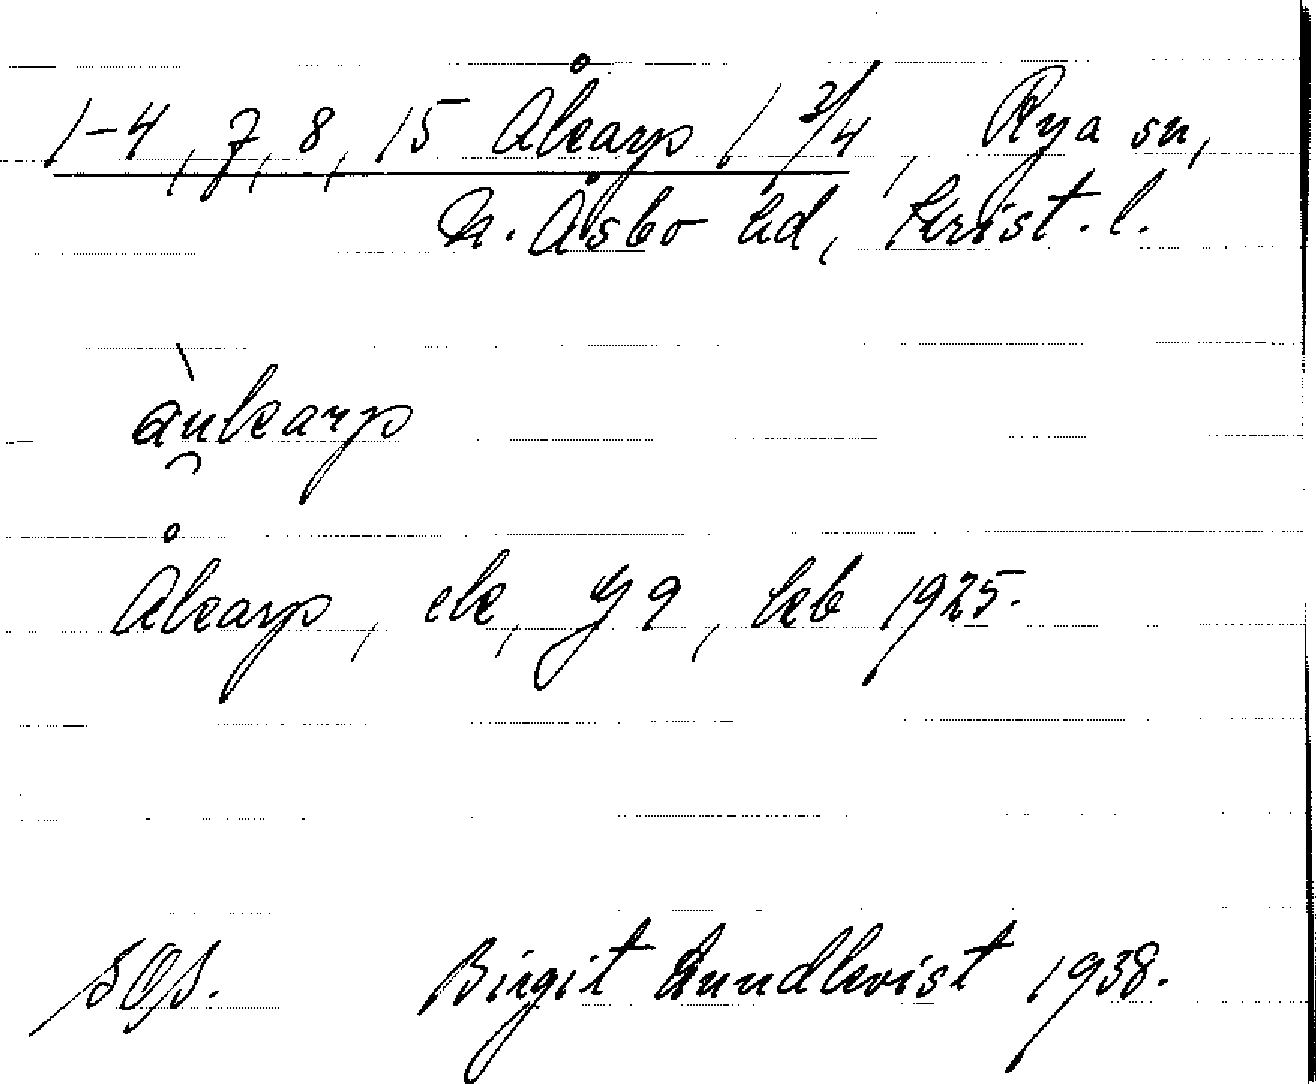 1-4, 7, 8, 15 Åkarp 1 3/4, Rya sn,
N. Åsbo hd, Krist. l.
àu̯karp
Åkarp, ek, Gg, kb 1925.
SOS. Birgit Lundkvist 1938.